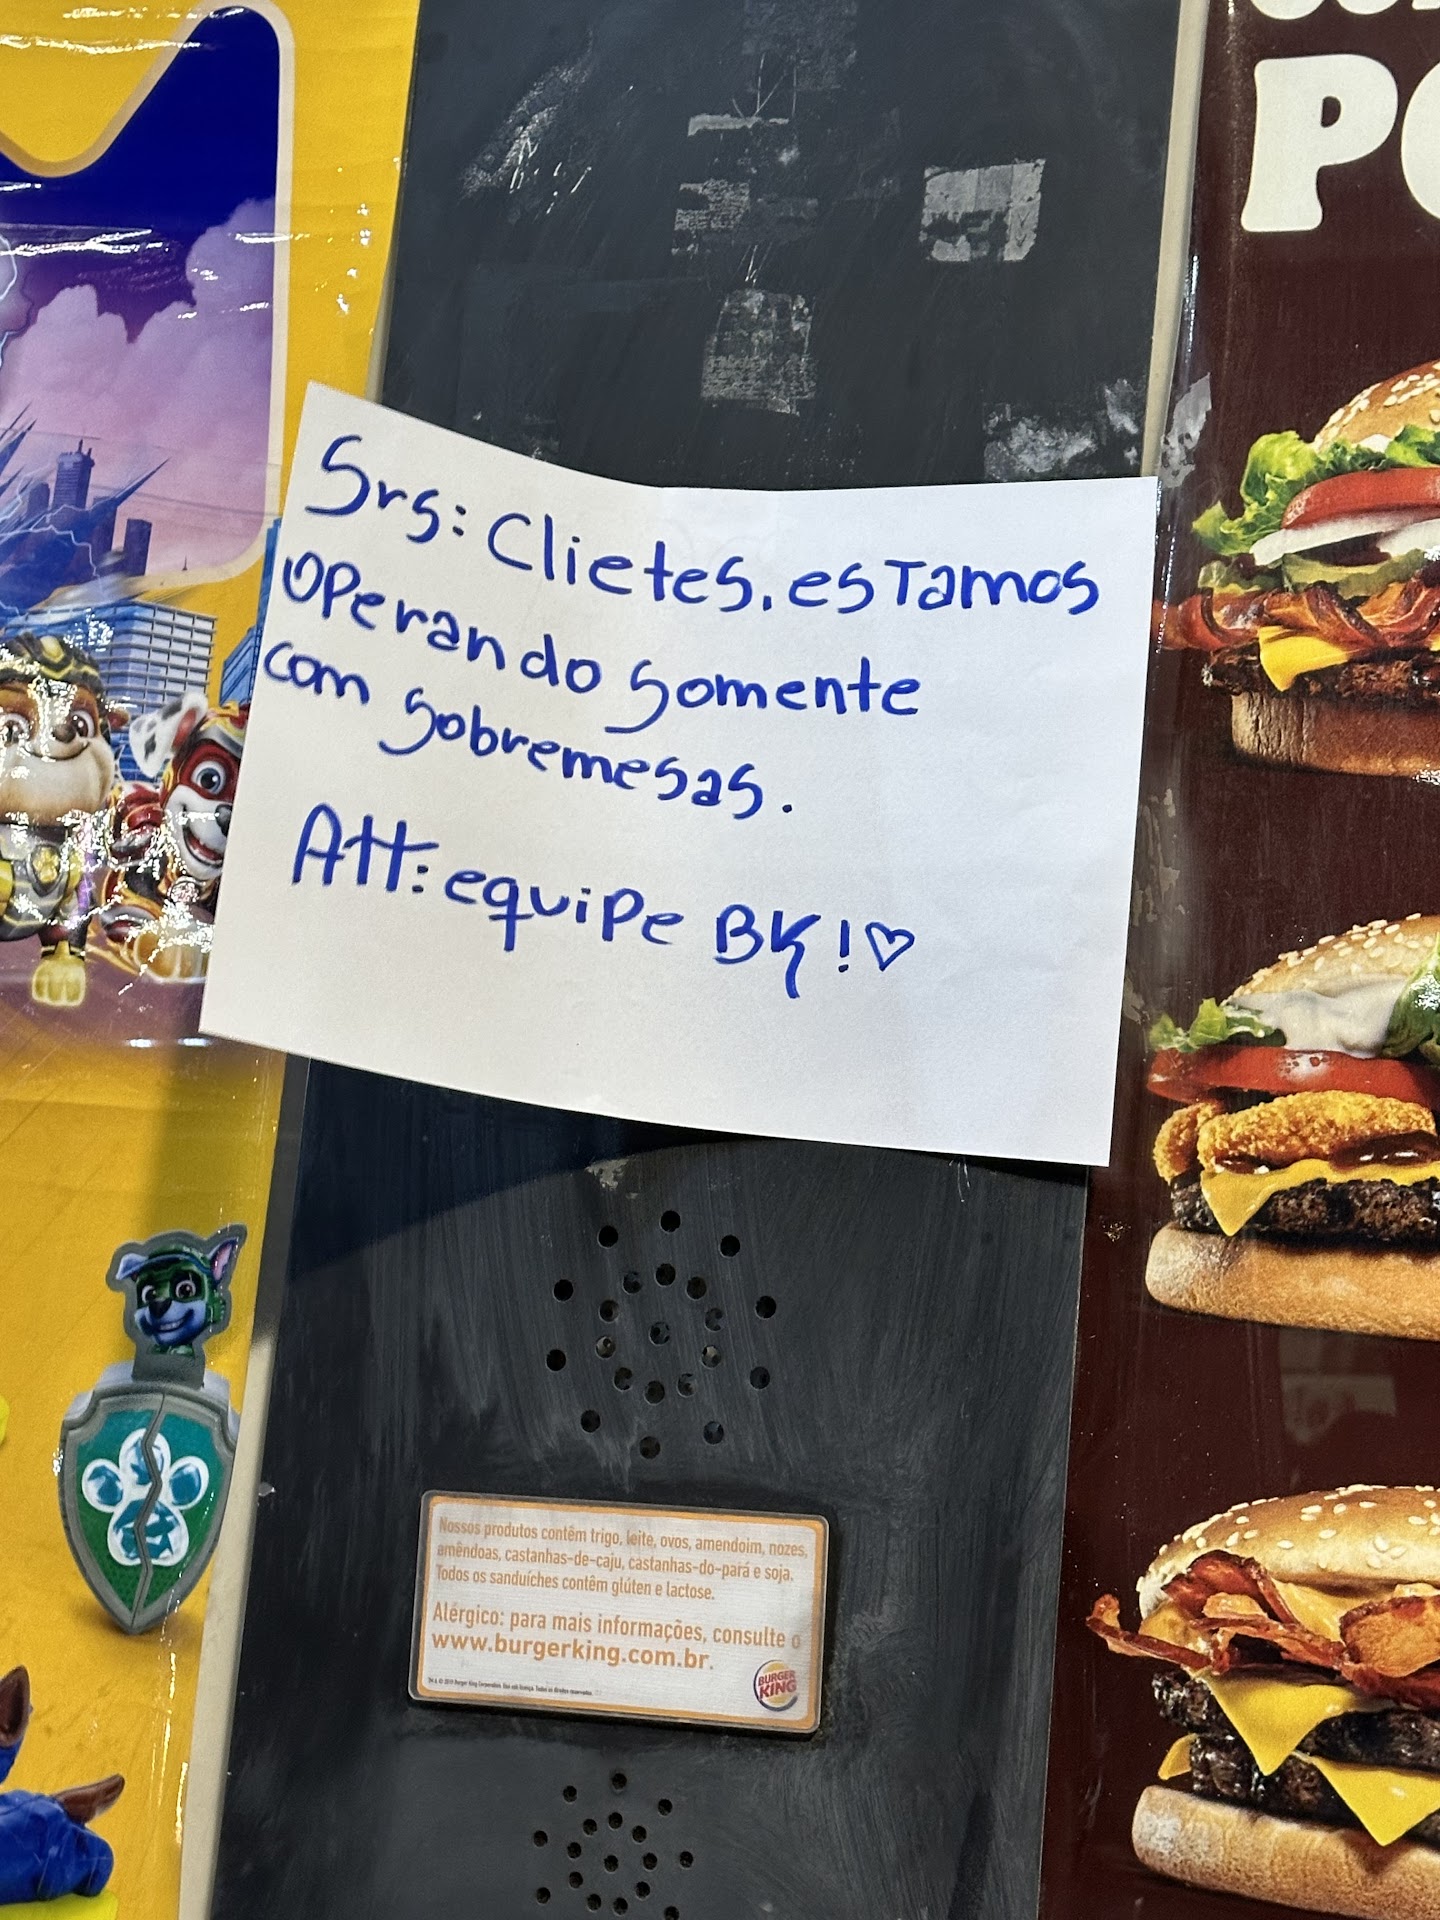 PO
Srs: Clietes, estamos
operando somente
com sobremesas.
Att: equipe BK!♡
Nossos produtos contêm trigo, leite, ovos, amendoim, nozes,
amêndoas, castanhas-de-caju, castanhas-do-pará e soja.
Todos os sanduíches contêm glúten e lactose.
Alérgico: para mais informações, consulte o
www.burgerking.com.br.
BURGER
KING